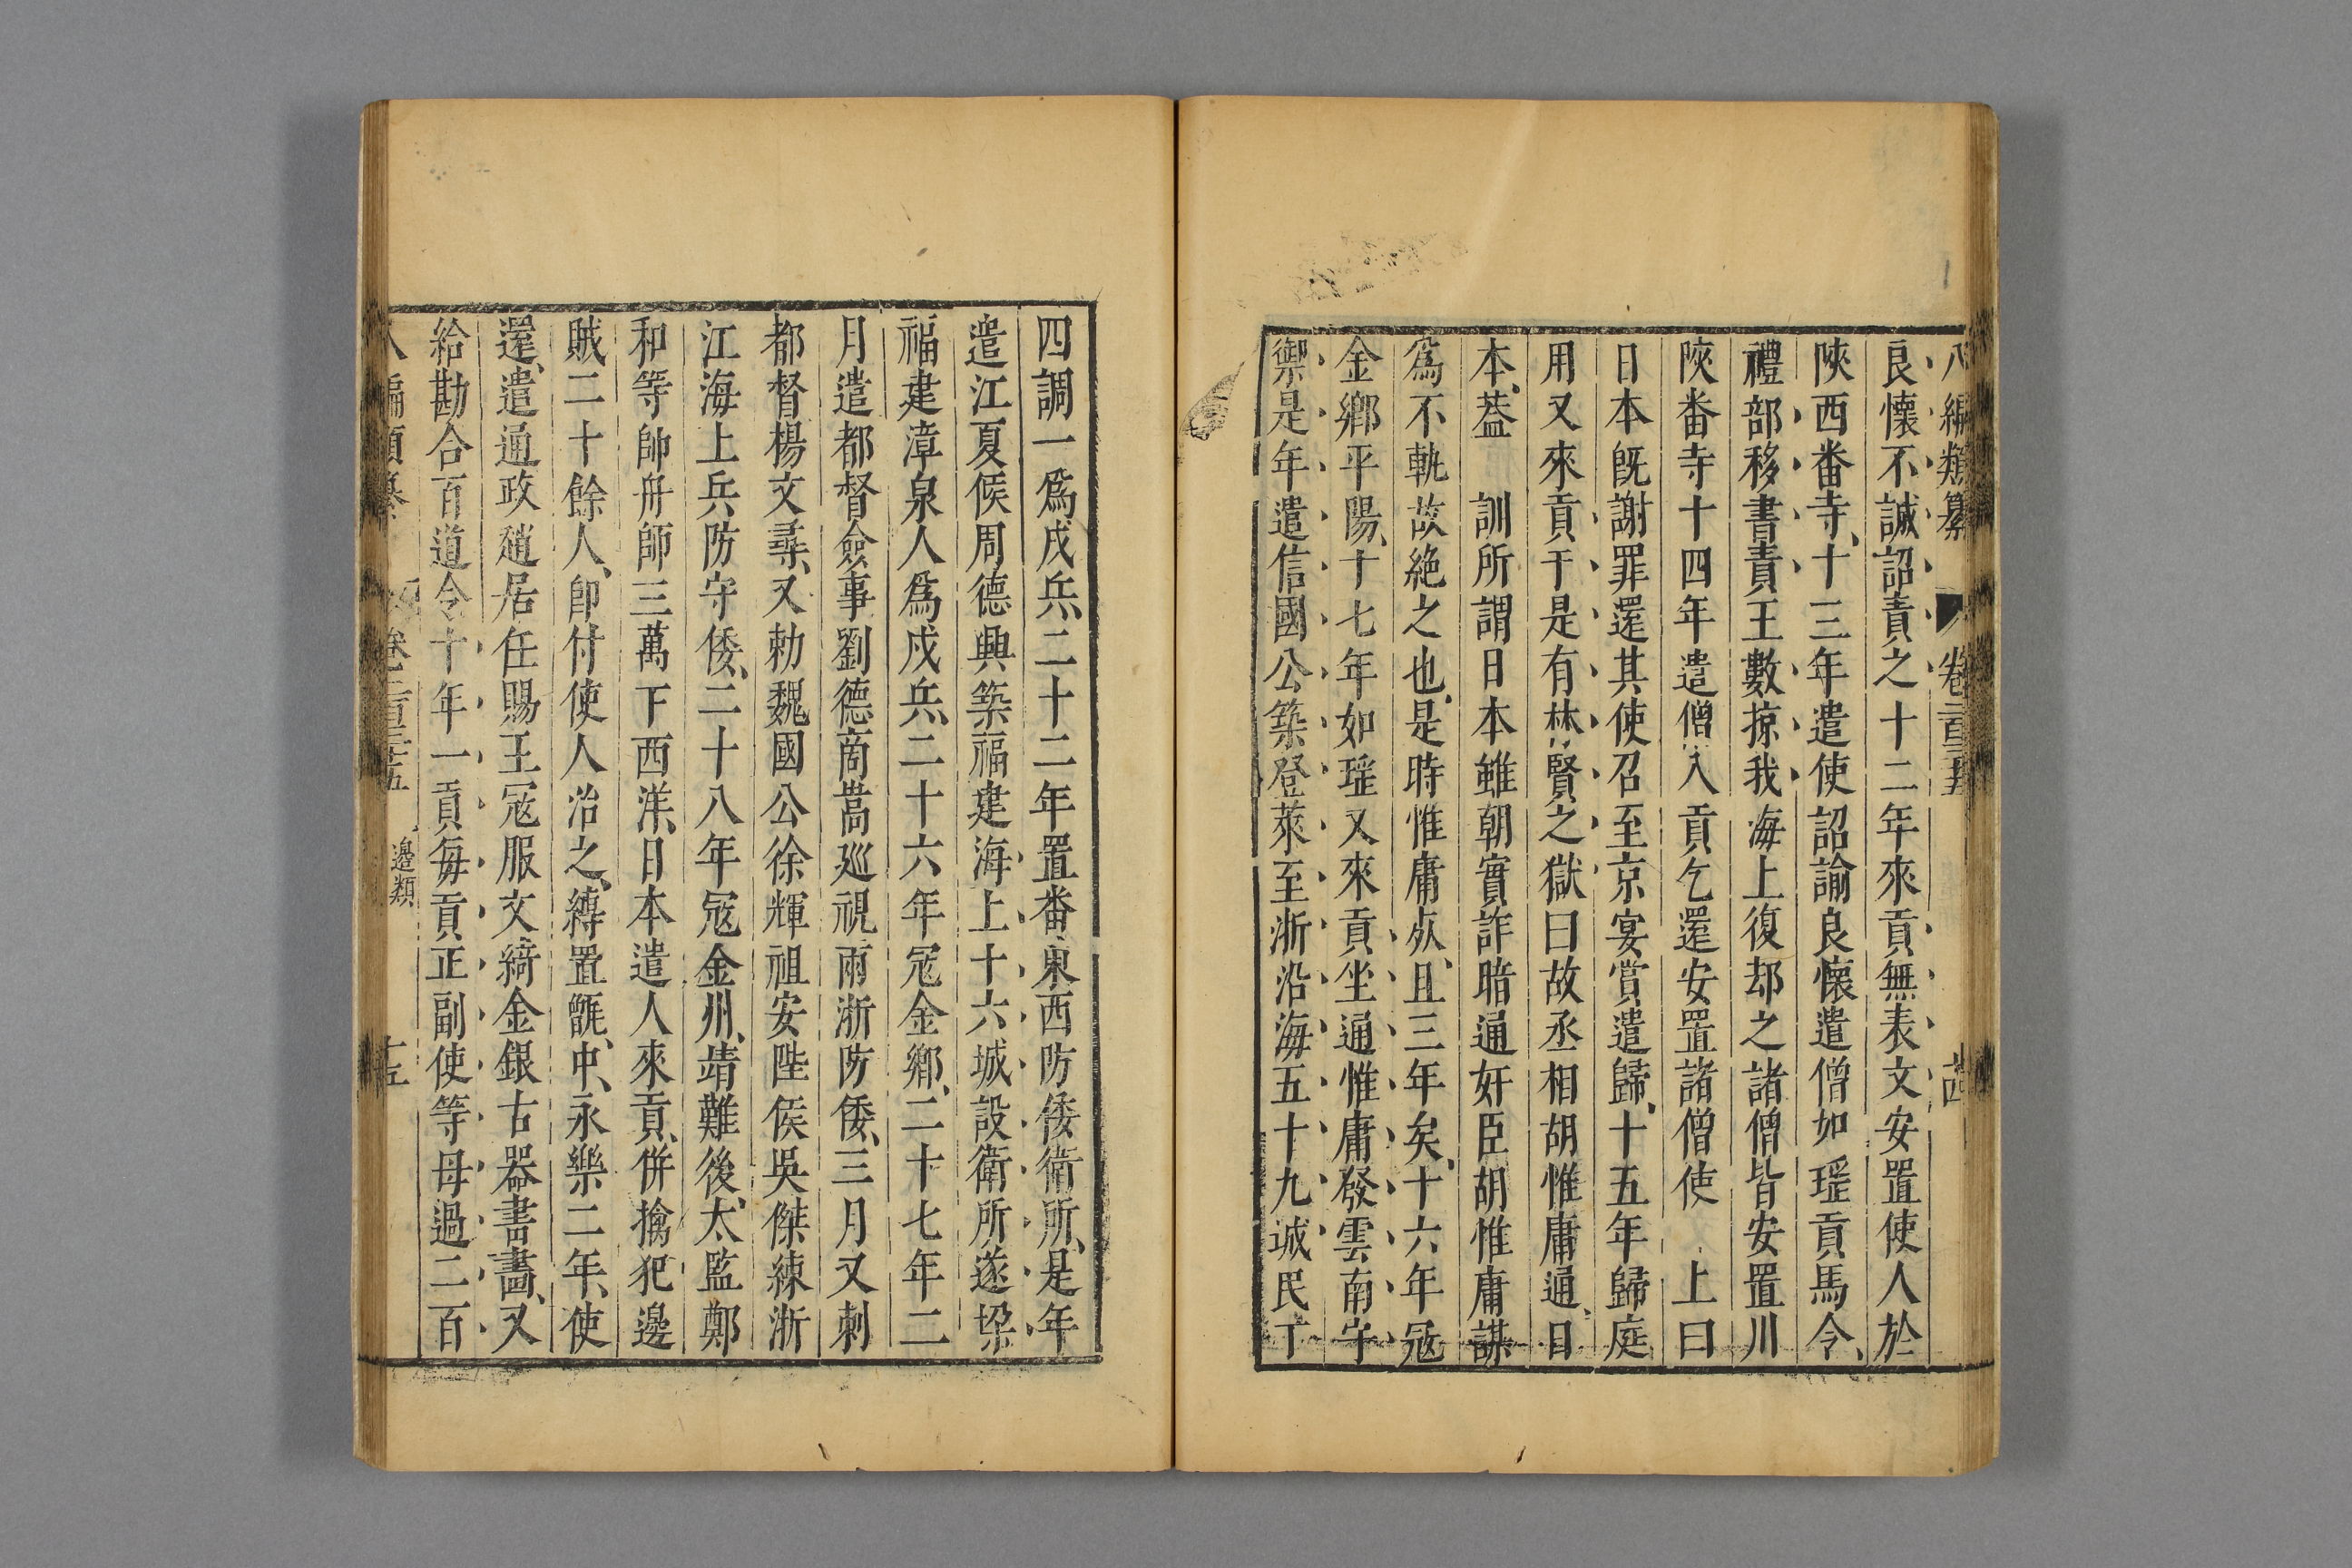 八編類纂　卷二百三十五　十四
良懷不誠詔責之十二年來貢無表文安置使人於
陝西番寺十三年遣使詔諭良懷遣僧如瑶貢馬令
禮部移書責王數掠我海上復却之諸僧皆安置川
陝番寺十四年遣僧入貢乞還安置諸僧使　上曰
日本旣謝罪還其使召至京宴賞遣歸十五年歸庭
用又來貢于是有林賢之獄曰故丞相胡惟庸通日
本葢　訓所謂日本雖朝實詐暗通奸臣胡惟庸謀
爲不軌故絶之也是時惟庸㱙且三年矣十六年冦
金鄉平陽十七年如瑶又來貢坐通惟庸發雲南守
禦是年遣信國公築登萊至浙沿海五十九城民丁
四調一爲戍兵二十二年置番東西防倭衛所是年
遣江夏侯周德興築福建海上十六城設衛所遂垜
福建漳泉人爲戍兵二十六年冦金鄉二十七年二
月遣都督僉事劉德商暠廵視兩浙防倭三月又刺
都督楊文尋又勅魏國公徐輝祖安陸侯吳傑練浙
江海上兵防守倭二十八年冦金州靖難後太監鄭
和等帥舟師三萬下西洋日本遣人來貢併擒犯邊
賊二十餘人卽付使人治之縛置甑中永樂二年使
還遣通政趙居任賜王冠服文綺金銀古器書畵又
給勘合百道令十年一貢每貢正副使等毋過二百
八編類纂　卷二百三十五　邊類　十五